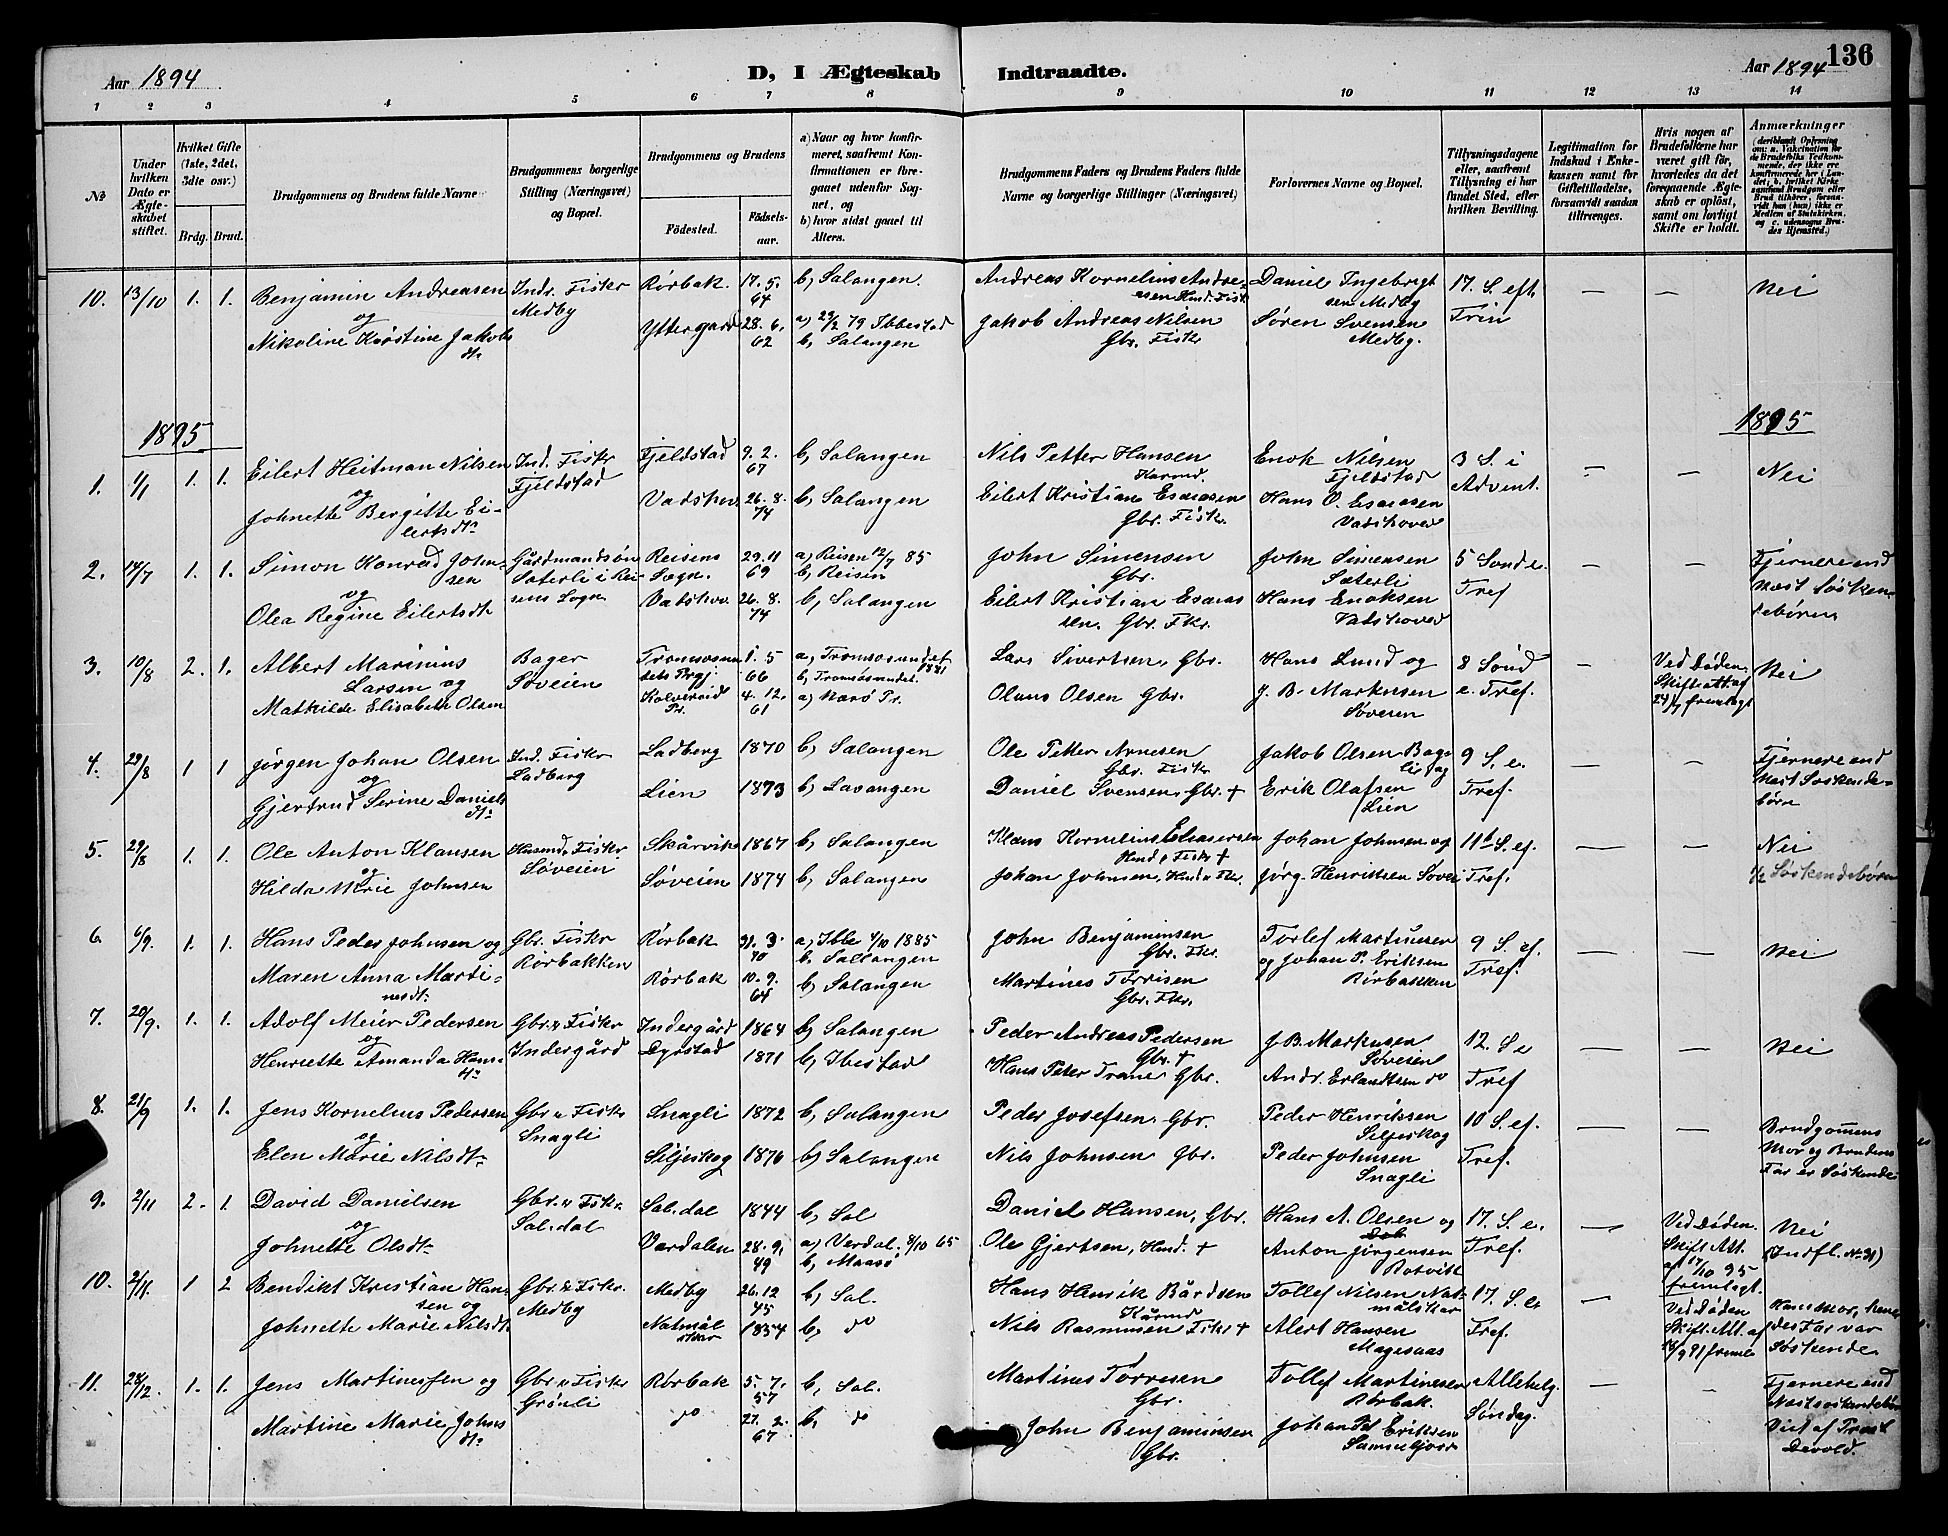 Aar 1894
D, I Ægteskab Indtraadte.
Aar 1894
136
1 2 3 4 5 6 7 8 9 10 11 12 13 14
№
Under hvilken Dato er Ægteskabet stiftet.
Hvilket Gifte (1ste, 2det, 3die osv.)
Brdg. Brud.
Brudgommens og Brudens fulde Navne.
Brudgommens borgerlige Stilling (Næringsvei) og Bopæl.
Brudgommens og Brudens
Fødested.
Fødselsaar.
a) Naar og hvor konfirmeret, saafremt Konfirmationen er foregaaet udenfor Sognet, og
b) hvor sidst gaaet til Alters.
Brudgommens Faders og Brudens Faders fulde Navne og borgerlige Stillinger (Næringsvei)
Forlovernes Navne og Bopæl.
Tillysningsdagene eller, saafremt Tillysning ei har fundet Sted, efter hvilken Bevilling.
Legitimation for Indskud i Enkekassen samt for Giftetilladelse, forsaavidt saadan tiltrænges.
Hvis nogen af Brudefolkene har været gift før, hvorledes da det foregaaende Ægteskab er opløst, samt om lovligt Skifte er holdt.
Anmærkninger
10. 13/10 1. 1. Benjamin Andreasen Indr. Fiskr Rørbak. 17. 5. b, Salangen. Andreas Kornelius Andre- Daniel Ingebrigt 17. S. eft — — Nei
og Medby 64 asen Hmd. Fisk. sen Medby Trin
Nikoline Kristine Jakobs Yttergard 28. 6. a) 29/2 79 Ibbestad Jakob Andreas Nilsen Søren Svensen
dtr 62 b, Salangen Gbr. Fiskr Medby.
1895
1895
1. 1/1 1. 1. Eilert Heitman Nilsen Ind. Fiskr Fjeldstad 9. 2. b, Salangen Nils Petter Hansen Enok Nilsen 3 S. i — — Nei
og Fjeldstad 67 Fjeldstad Advent.
Johnette Bergitte Ei- Vadshov. 26. 8. b, Salangen Eilert Kristian Esaiasen Hans O. Esaiasen
lertsdtr 74 Gbr. Fiskr. Vadshoved
2. 14/7 1. 1. Simon Konrad John- Gårdmandsøn Reisens 29. 11 a) Reisen 12/7 85 John Simensen John Simensen 5 Sond e. Fjernere end
sen Sæterli i Rei- Sogn. 69 b, Reisen Gbr. Sæterli Tref Næst Søsken
og sens Sogn Vatshov. 26. 8. b, Salangen Eilert Kristian Esaias Hans Enoksen debørn
Olea Regine Eilertsdtr 74 sen. Gbr. Fkr. Vadshoved
3. 10/8 2. 1. Albert Marinius Bager Tromsøsun 1. 5 a, Tromsøsundet 1881 Lars Sivertsen, Gbr. Hans Lund og 8 Sønd — Ved Døden. Nei
Larsen og Søveien dets Prgj. 66 b, Tromsøsundet. e. Tref. Skifteatt. af
Mathilde Elisabeth Olsen Kolvereid Pr. 4. 12. 61 a) Nærø Pr. Olaus Olsen Gbr. J. B. Markusen 24/7 fremlagt
Søveien
4. 29/8 1 1 Jørgen Johan Olsen Ind. Fiskr Ladberg 1870 b, Salangen Ole Petter Arnesen Jakob Olsen Bogs 9 S. e. — — Fjernere end
og Ladberg Gbr. Fiskr lid og Tref. Næst Søskende-
Gjertrud Serine Daniels Lien 1873 b, Lavangen Daniel Svensen, Gbr. + Erik Olafsen børn
dtr Lien
5. 29/8 1. 1. Ole Anton Klausen Husmd. Fiskr. Skårvik 1867 b, Salangen Klaus Kornelius Eliasersen Johan Johnsen og 11te S. ef. — — Nei
og Søveien Hmd, Fiskr +
Hilda Marie Johnsen Søveien 1874 b, Salangen Johan Johnsen, Hmd. Fkr. Jørg. Henriksen Søvei Tref. 1/2 Søskendebørn
6. 6/9. 1. 1. Hans Peder Johnsen og Gbr. Fiskr Rørbak 31. 3. a) Ibbe 4/10 1885 John Benjaminsen Torlef Martinesen 9 S. ef. — — Nei
Rørbakken 70 b, Sallangen Gbr. Fkr. og Johan P. Eriksen Tref.
Maren Anna Marti- Rørbak 10. 9. b, Salangen Martines Torrisen Rørbakken
nesdtr 64 Gbr. Fkr.
7. 20/9. 1. 1. Adolf Meier Pedersen Gbr. & Fiskr Indergård 1864 b, Salangen Peder Andreas Pedersen J. B. Markusen 12. S e — — Nei
og Indergård Gbr. + Søveien
Henriette Amanda Hans- Dyrstad 1871 b, Ibestad Hans Peter Trane Gbr. Andr. Erlandtsen do Tref
dtr
8. 21/9 1. 1. Jens Kornelius Pedersen Gbr. & Fiskr Snagli 1872 b, Salangen Peder Josefsen. Gbr. Peder Henriksen 10 S. ef. — — Brudgommens
og Snagli Siljeskog Mor og Brudens
Elen Marie Nilsdtr Siljeskog 1876 b, Salangen Nils Johnsen Gbr. Peder Johnsen Tref. Far er Søskende
Snagli
9. 2/11 2. 1. David Danielsen Gbr. & Fiskr Sal. dal 1844 b, Sal Daniel Hansen, Gbr. Hans A. Olsen og 17. S. e. — Ved Døden. Nei
og Sal. dal Skift. Att. (Indfl. No 31)
Johnette Olsdtr Værdalen 28. 9. a) Verdal. 8/10 65 Ole Gjertsen, Hmd. + Anton Jørgensen Tref. af 17/10 95
49 b, Maasø Rotvik fremlagt.
10. 2/11. 1 2 Bendikt Kristian Han- Gbr. & Fiskr. Medby 26. 12 b, Sal. Hans Henrik Bårdsen Tollef Nilsen Nat- 17. S. e. — Ved Døden Hans Mor, hen-
sen og Medby 45 målskar Skift. Att. af des Far var
Johnette Marie Nilsdtr. Natmål 1854 b, do Nils Rasmussen Fiskr + Alert Hansen Tref. 18/9 91 fremlt Søskende
skar Magesaas
11. 28/12. 1. 1. Jens Martinessen og Gbr. & Fiskr Rørbak 5. 7. b, Sal. Martines Torresen Tollef Martinesen Allehelg. — — Fjernere end
Grønli 57 Gbr. Rørbak. Søndag. Næstsøskendebørn
Martine Marie Johns do 27. 2. b, do John Benjaminsen Johan Pet Eriksen Viet af Provst
dtr 67 Gbr. Devold.